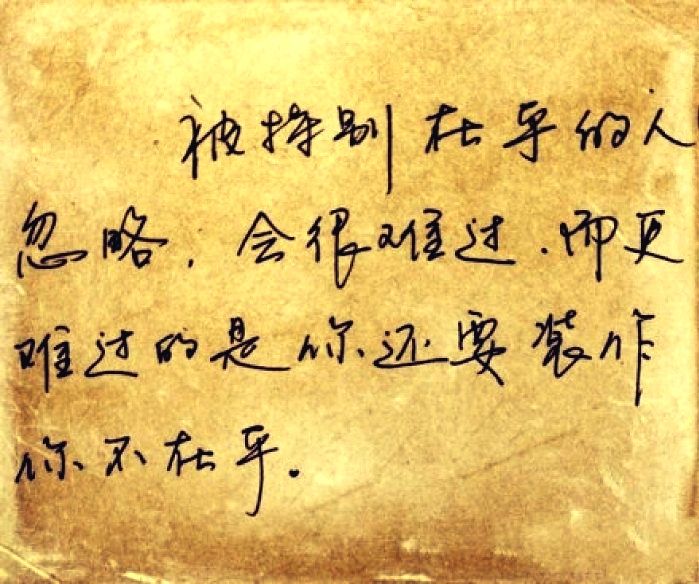 被特别在乎的人
忽略，会很难过，而更
难过的是你还要装作
你不在乎。